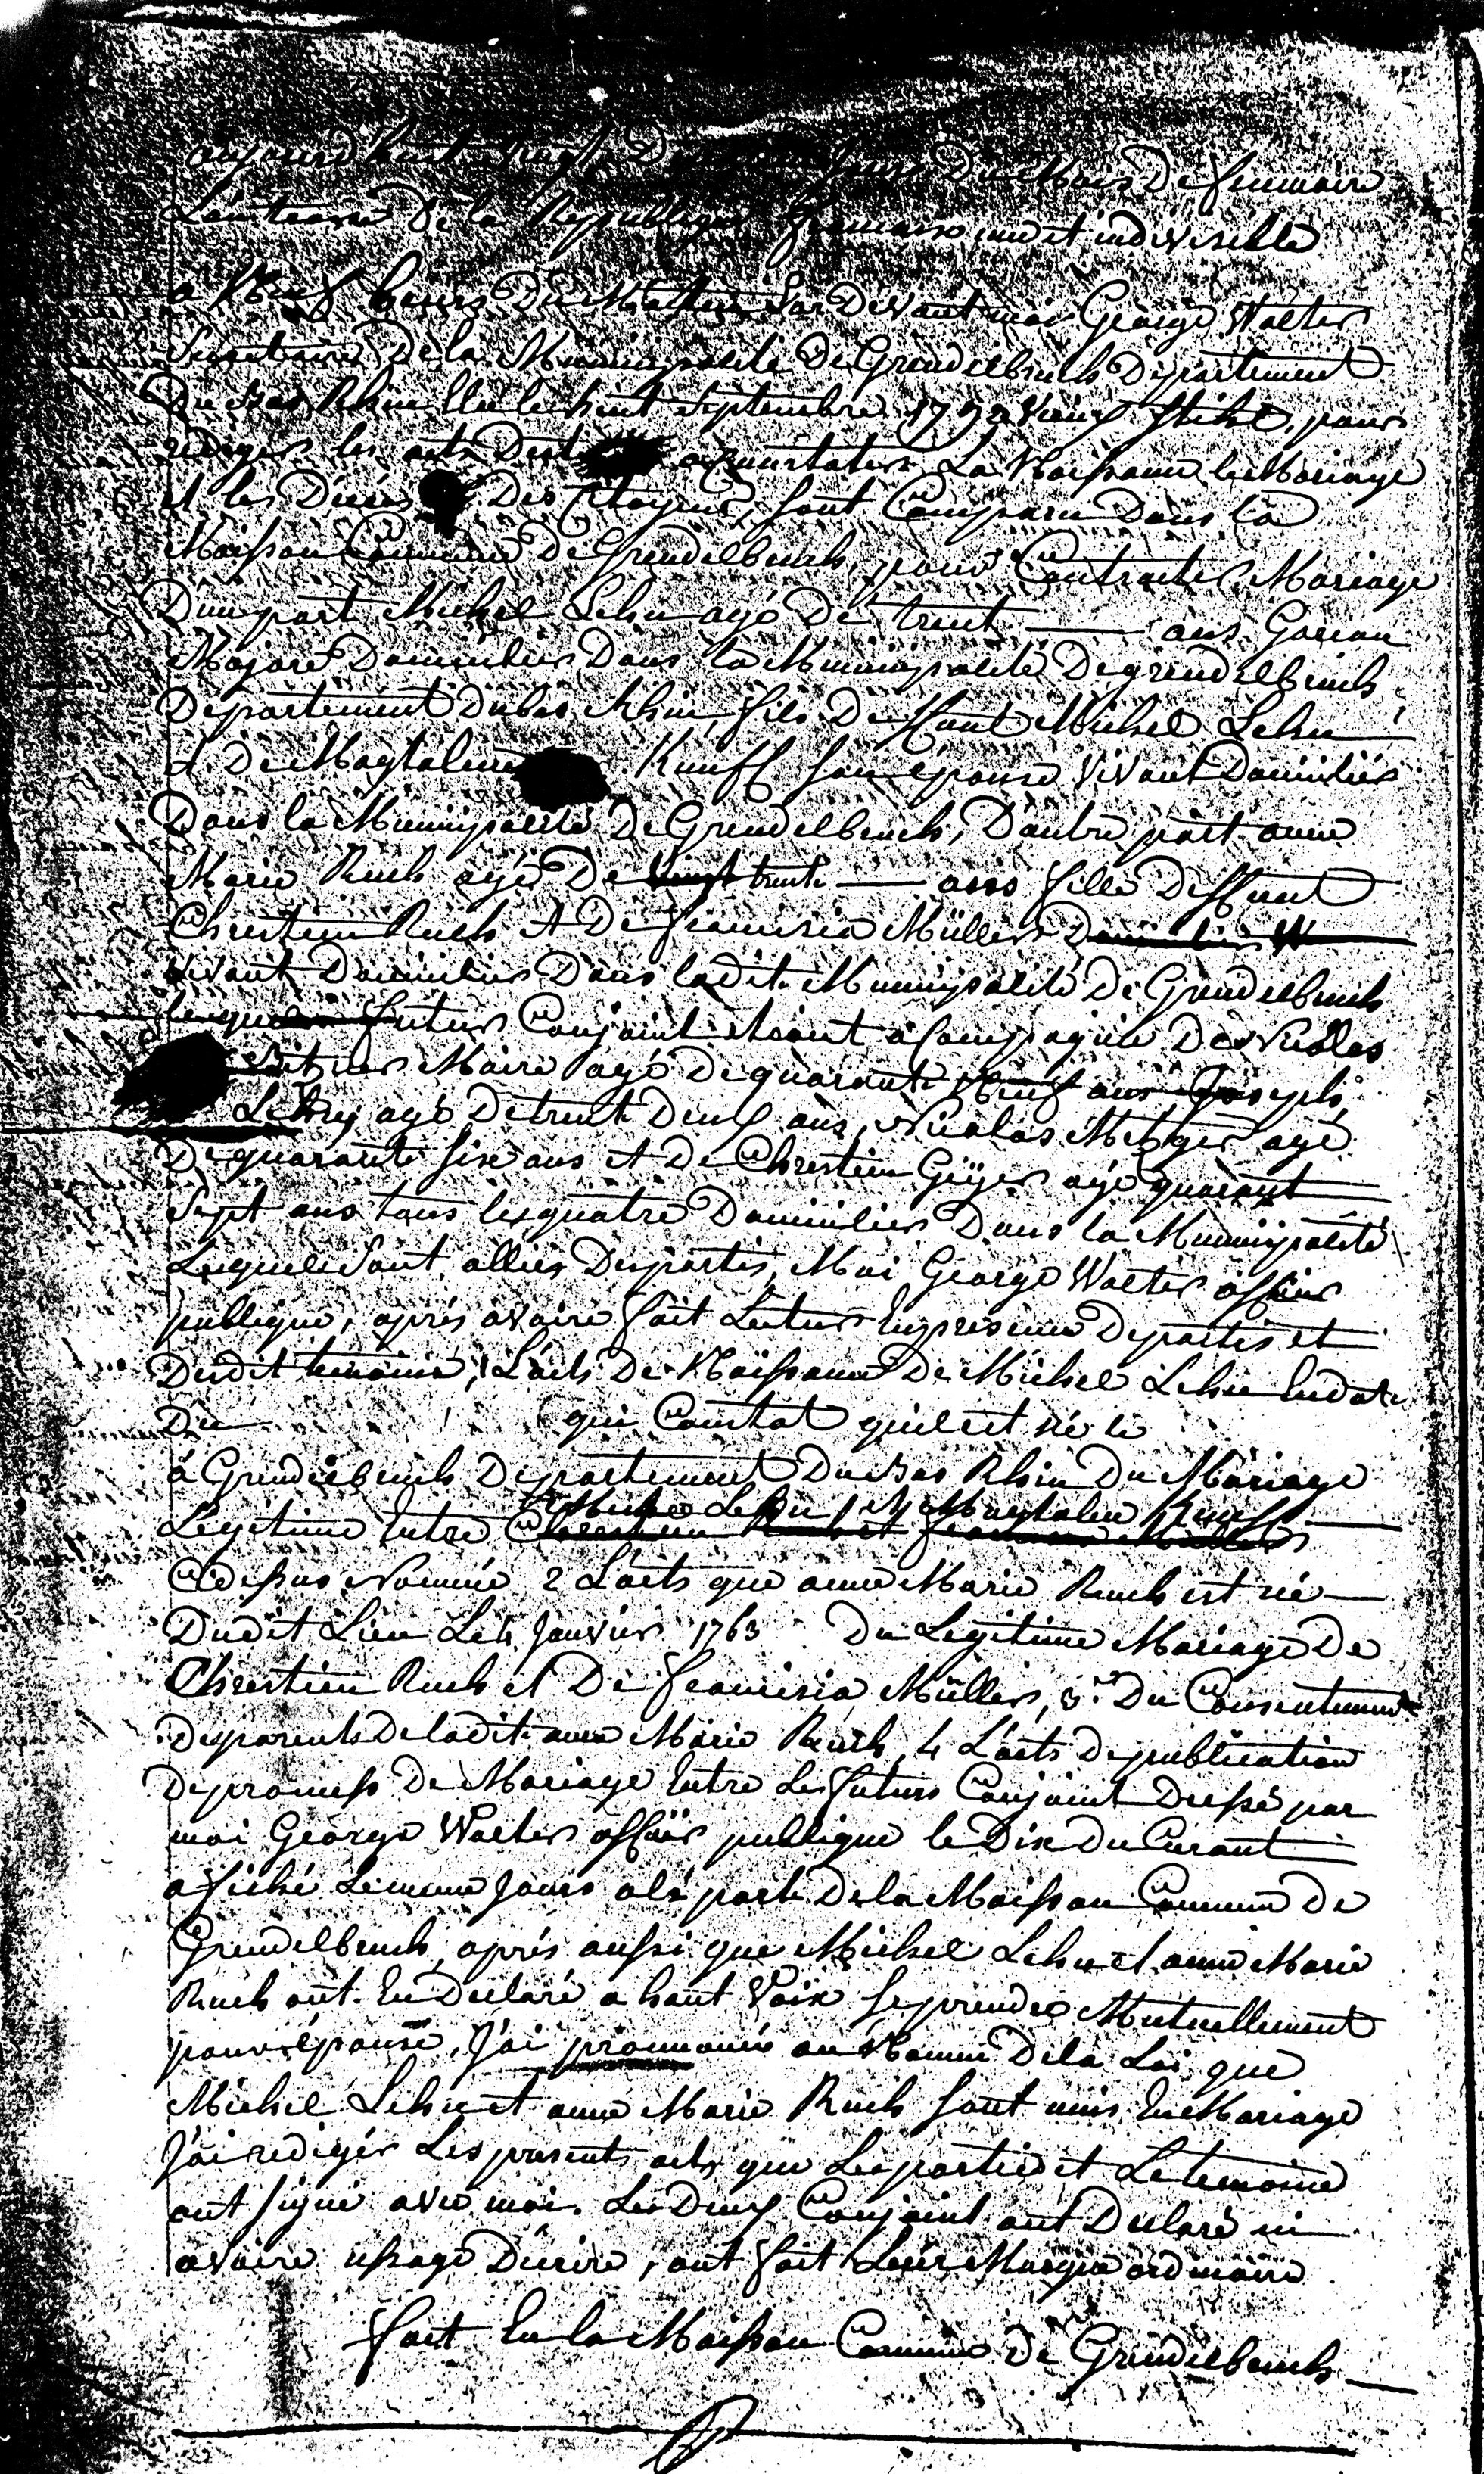 aujourd'huit Neuf Du Jours Du Mois De frimaire
L'an troisie De la Republique francaise une et indivisible
a Neuf heures Du Mattin Par Devant moi George Walter
Secretaire De la Municipalité De Grendelbruch Departement
Du Bas Rhin Elu le huit Septembre 1792 Vieux Stiele, pour
rediger les acts Dest a Counstater La Naissance le Mariage
et les Décés Des Citoyens, sont Comparu Dans la
Maisson Commune De Grendelbruch, pour Contracter Mariage
D'un part Michel Lehn agé De trent ans Garçon
Majore Domicilier Dans la Municipalité De grendelbruch
Departement Dubas Rhin, fils De ffeut Michel Lehn
et De Magtalena Kunff son épouse Vivant Domiciliés
Dans la Municipalité De Grendelbruch, D'autre part anne
Marie Ruch agé De Vingt trente ans fille Deffunt
Chrestien Ruch et De francisca Müller Domicilier W
vivant Domicilier Dans ladit Municipalité De Grendelbruch
lesquels futurs Conjoint etoient acompagnié De Nicolas
Maire agé De quarante Neuf ans Joseph
agé De trent Deux ans, Nicolas Metzger agé
De quarante six ans et De Chrestien Geÿer agé quarant
Sept ans tous les quatre Domicilier Dans la Municipalité
Lesquele Sont alliés Desparties, Moi George Walter officier
publique, aprés avoire fait Lecture En presence De partis et
Desdit temoins, L'acts De Naissance De Michel Lehn En date
Du qui Counstat quil est né le
à Grendelbruch Departement Du Bas Rhin Du Mariage
Michel Lehn et Magtalena Kunff
Legitime Entre Chrestien Ruch et francisca Müller
Cidessus Nommée 2 L'acts que anne Marie Ruch est née
Dudit Lieu Le 4 Janvier 1763 Du Legitime Mariage De
Chrestien Ruch et De francisca Müller, 3.º Du Consentement
Desparents De ladit anne Marie Ruch, 4 L'acts De publication
De promess De Mariage Entre Les futurs Conjoint Dressé par
moi George Walter officier publique le Dix Du Curant
affiché Le meme Jours a la porte De la Maisson Commune De
Grendelbruch, aprés aussi que Michel Lehn et anne Marie
Ruch ont En Declaré a haut Voix se prendre Mutuellement
pour épouse, J'ai prounoncés au Nomme De la Loi que
Michel Lehn et anne Marie Ruch sont unis En Mariage
J'ai rediger Les presents acts que Les partie et Le temoins
ont signé avec moi. Les Deux Conjoint ont Declaré ni
avoire ussage D'ecrire, ont fait Leur Marque ordinaire
fait En la Maisson Commune De Grendelbruch